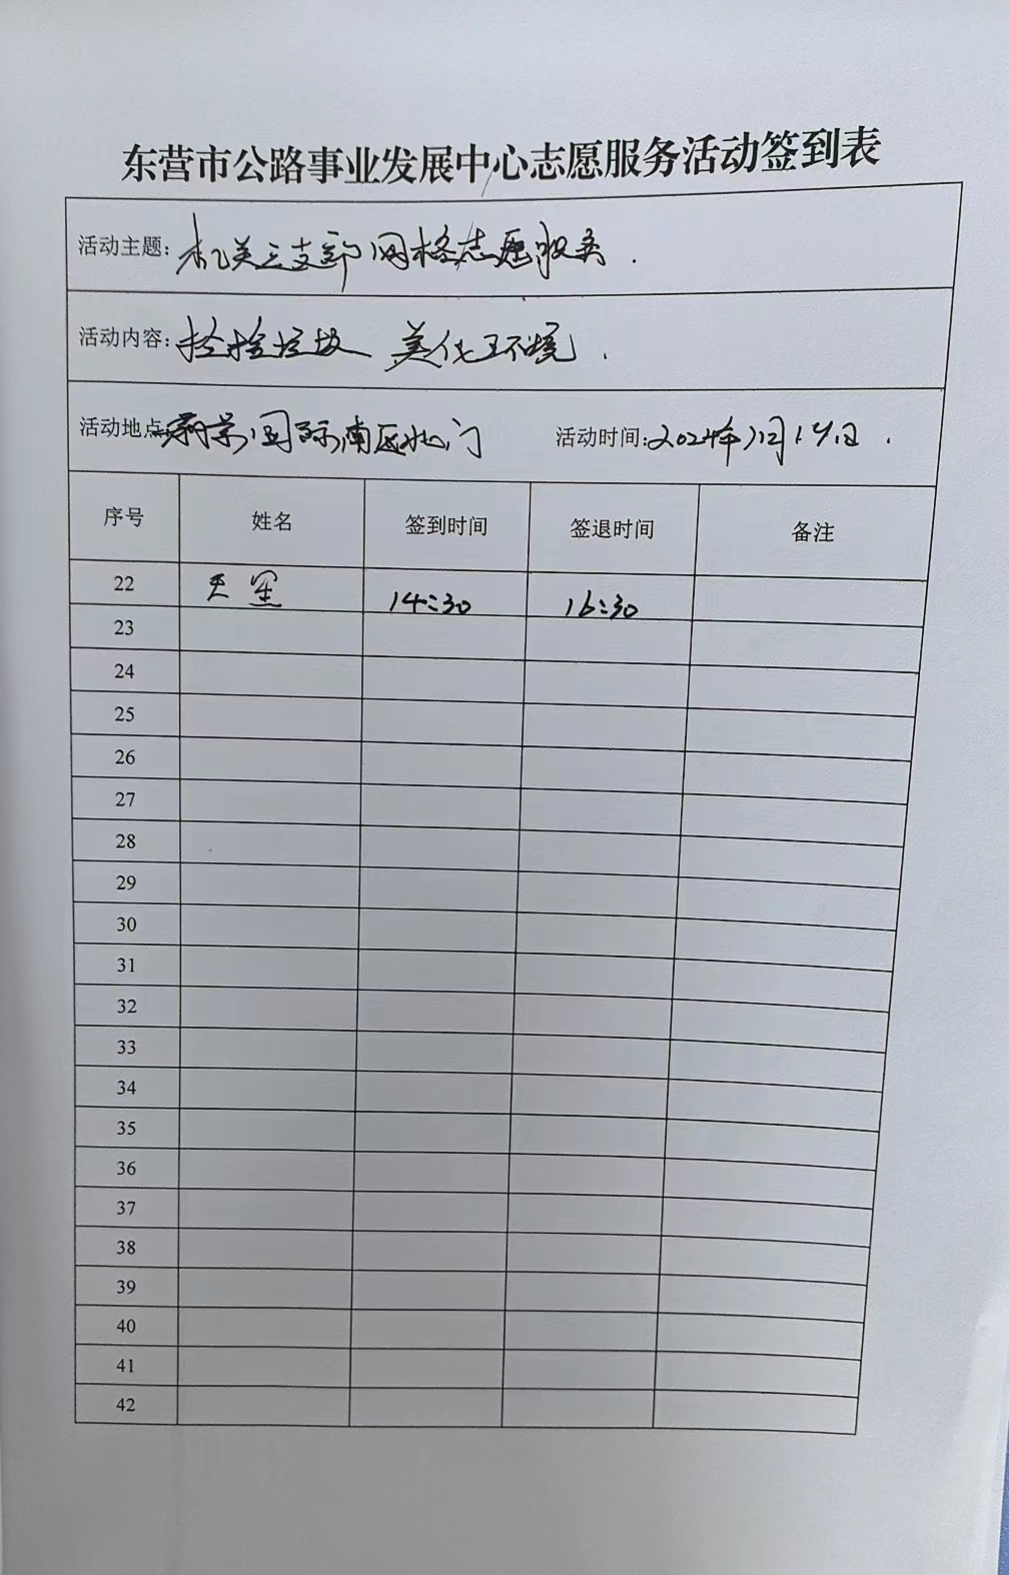 东营市公路事业发展中心志愿服务活动签到表
活动主题: 机关三支部网格志愿服务.
活动内容: 捡拾垃圾 美化环境.
活动地点 景国际南区北门 活动时间: 2024年12月19日.
序号 姓名 签到时间 签退时间 备注
22 14:30 16:30
23
24
25
26
27
28
29
30
31
32
33
34
35
36
37
38
39
40
41
42